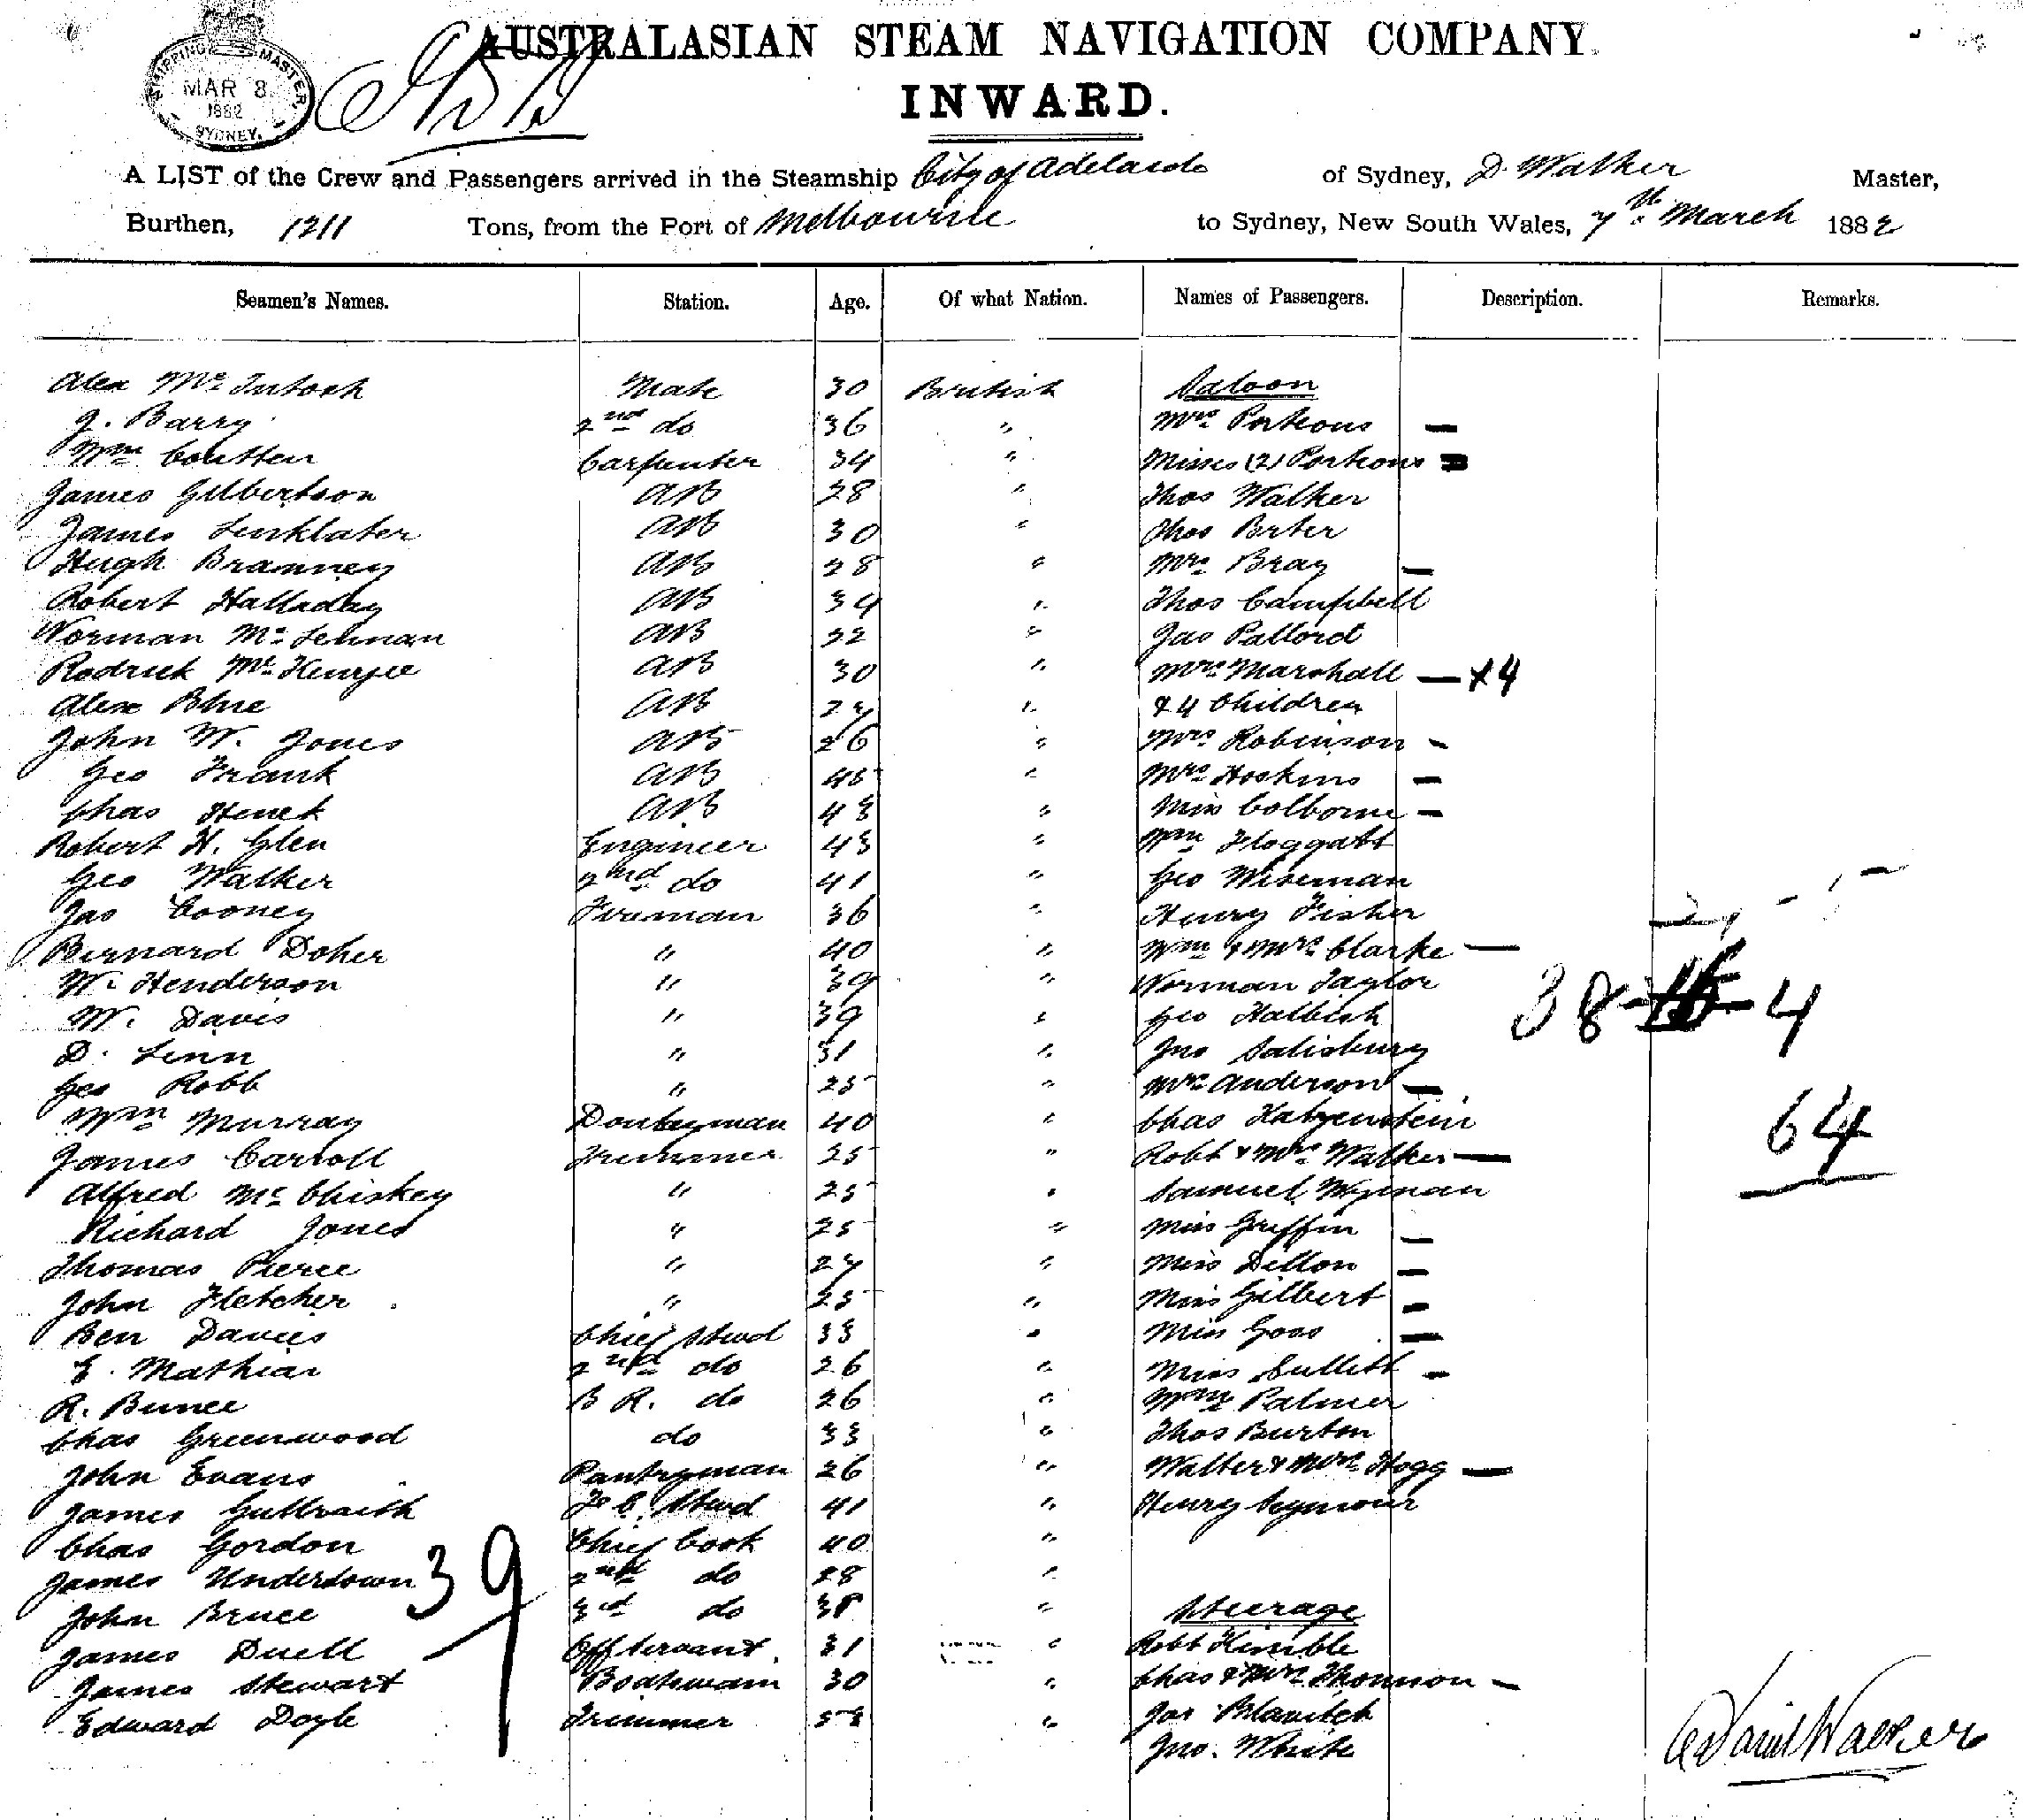 AUSTRALASIAN STEAM NAVIGATION COMPANY.
SHIPPING MASTER
MAR 8
1882
SYDNEY.
INWARD.
A LIST of the Crew and Passengers arrived in the Steamship City of Adelaide of Sydney, D. Walker Master,
Burthen, 1211 Tons, from the Port of Melbourne to Sydney, New South Wales, 7th March 1882
Seamen's Names. Station. Age. Of what Nation. Names of Passengers. Description. Remarks.
Alex McIntosh Mate 30 British Saloon
J. Barry 2nd do 36 " Mrs Porteous —
Wm Coutten Carpenter 34 " Misses (2) Porteous =
James Gilbertson AB 28 " Thos Walker
James Linklater AB 30 " Thos
Hugh Bramney AB 28 " Mrs Bray —
Robert Halladay AB 34 " Thos Campbell
Norman McLennan AB 22 " Jas
Rodrick McKenzie AB 30 " Mrs Marshall — x4
Alex Blue AB " & 4 Children
John W. Jones AB 26 " Mrs Robinson -
Geo Frank AB 45 " Mrs Hoskins —
Chas AB 43 " Miss Colborne —
Robert H. Glen Engineer 43 " Wm
Geo Walker 2nd do 41 " Geo Wiseman
Jas Cooney Fireman 36 " Henry Fisher
Bernard Doher " 40 " Wm & Mrs Clarke —
W. Henderson " 39 " Norman Taylor
W. Davis " 39 " Geo
38 - 16 - 4
D. Linn " 31 " Jno Salisbury
Geo Robb " 25 " Mrs Anderson —
Wm Murray Donkeyman 40 " Chas Katzenstein
64
James Carroll Trimmer 25 " Robt & Mrs Walker —
Alfred McChiskey " 25 " Samuel Wyman
Richard Jones " 25 " Miss Griffin —
Thomas Pierce " 27 " Miss Dillon —
John Fletcher " 25 " Miss Gilbert —
Ben Davies Chief Stwd 33 " Miss Goss —
E. Mathias 2nd do 26 " Miss —
R. Bunce B R. do 26 " Wm Palmer
Chas Greenwood do 33 " Thos Burton
John Evans Pantryman 26 " Walter & Mrs Hogg —
James Stwd 41 " Henry Seymour
Chas Gordon Chief Cook 40 "
James Underdown 2nd do 28 "
39
John Bruce 3rd do " Steerage
James Duell Off Servant 31 " Robt Kimble
James Stewart 30 " Chas & Mrs Thomson —
Edward Doyle Trimmer " Jas
Jno. White
David Walker